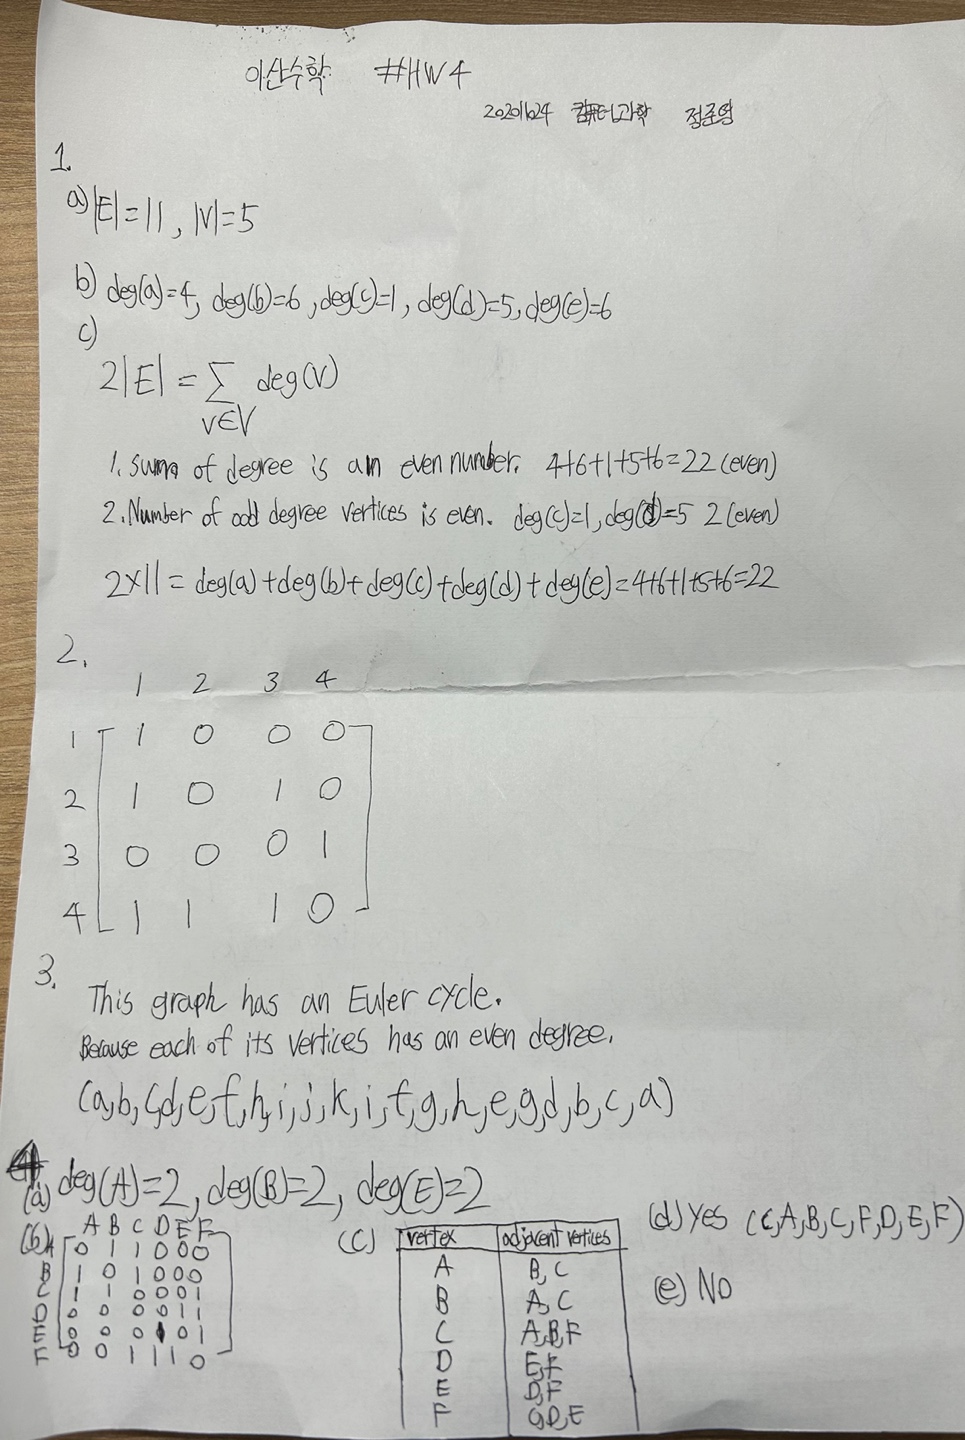 이산수학 #HW4
20201624 컴퓨터과학 정준영
1.
a) |E|=11, |V|=5
b) deg(a)=4, deg(b)=6, deg(c)=1, deg(d)=5, deg(e)=6
c)
2|E| = ∑ deg(V)
v∈V
1. Sum of degree is an even number. 4+6+1+5+6=22 (even)
2. Number of odd degree vertices is even. deg(c)=1, deg(d)=5 2 (even)
2×11 = deg(a)+deg(b)+deg(c)+deg(d)+deg(e)=4+6+1+5+6=22
2.
1 2 3 4
1 1 0 0 0
2 1 0 1 0
3 0 0 0 1
4 1 1 1 0
3.
This graph has an Euler cycle.
Because each of its vertices has an even degree.
(a,b,c,d,e,f,h,i,j,k,i,f,g,h,e,g,d,b,c,a)
4
(a) deg(A)=2, deg(B)=2, deg(E)=2
(b) A B C D E F
A 0 1 1 0 0 0
B 1 0 1 0 0 0
C 1 1 0 0 0 1
D 0 0 0 0 1 1
E 0 0 0 1 0 1
F 0 0 1 1 1 0
(c) vertex adjacent vertices
A B, C
B A, C
C A,B,F
D E,F
E D,F
F C,D,E
(d) Yes (C,A,B,C,F,D,E,F)
(e) No